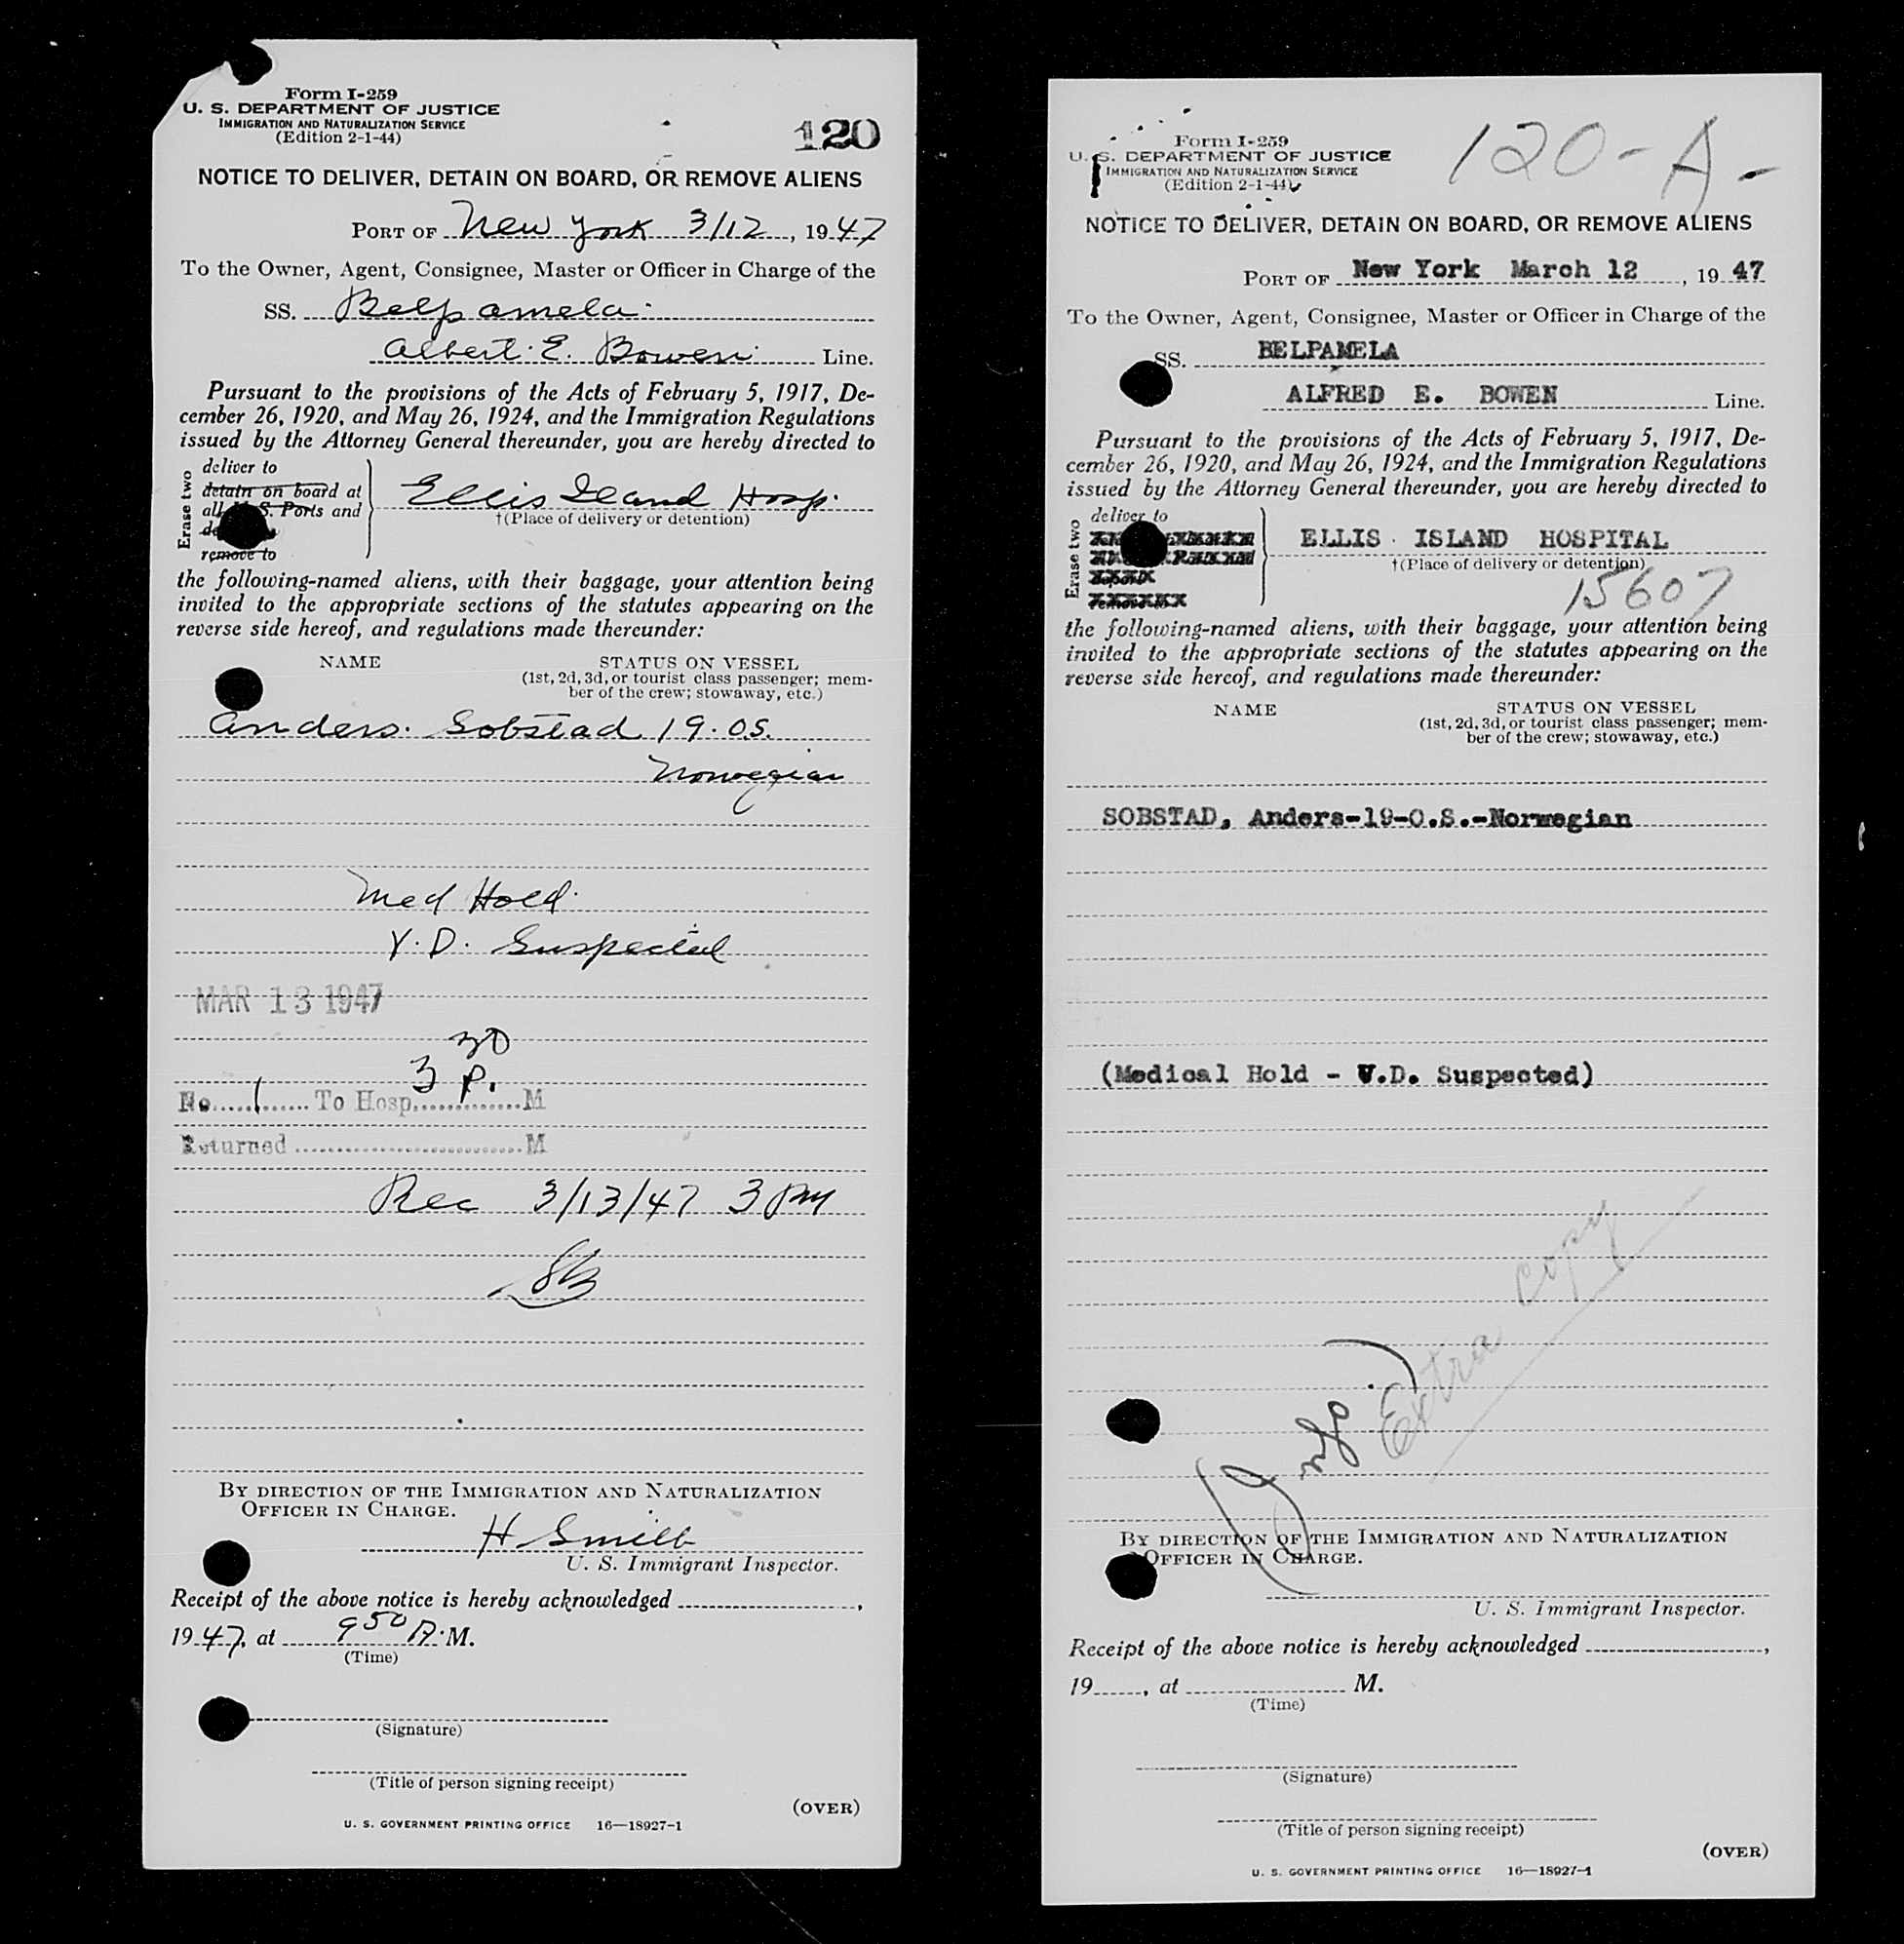 Form I-259
U. S. DEPARTMENT OF JUSTICE
IMMIGRATION AND NATURALIZATION SERVICE
(Edition 2-1-44)
120
NOTICE TO DELIVER, DETAIN ON BOARD, OR REMOVE ALIENS
PORT OF New York 3/12, 1947
To the Owner, Agent, Consignee, Master or Officer in Charge of the
SS. Belpamela
Albert E. Bowen Line.
Pursuant to the provisions of the Acts of February 5, 1917, De-
cember 26, 1920, and May 26, 1924, and the Immigration Regulations
issued by the Attorney General thereunder, you are hereby directed to
Erase two
deliver to
detain on board at
all S. Ports and
remove to
Ellis Iland Hosp.
†(Place of delivery or detention)
the following-named aliens, with their baggage, your attention being
invited to the appropriate sections of the statutes appearing on the
reverse side hereof, and regulations made thereunder:
NAME STATUS ON VESSEL
(1st, 2d, 3d, or tourist class passenger; mem-
ber of the crew; stowaway, etc.)
Anders. Sobstad 19. O.S.
Norwegian
Med Hold
V.D. Suspected
MAR 13 1947
3 30 P.
No. 1 To Hosp. M
Returned M
Rec 3/13/47 3 PM
BY DIRECTION OF THE IMMIGRATION AND NATURALIZATION
OFFICER IN CHARGE.
H Smith
U. S. Immigrant Inspector.
Receipt of the above notice is hereby acknowledged ,
1947, at 9 50 A. M.
(Time)
(Signature)
(Title of person signing receipt)
(OVER)
U. S. GOVERNMENT PRINTING OFFICE 16—18927-1
Form I-259
U. S. DEPARTMENT OF JUSTICE
IMMIGRATION AND NATURALIZATION SERVICE
(Edition 2-1-44)
120-A-
NOTICE TO DELIVER, DETAIN ON BOARD, OR REMOVE ALIENS
PORT OF New York March 12, 1947
To the Owner, Agent, Consignee, Master or Officer in Charge of the
SS. BELPAMELA
ALFRED E. BOWEN Line.
Pursuant to the provisions of the Acts of February 5, 1917, De-
cember 26, 1920, and May 26, 1924, and the Immigration Regulations
issued by the Attorney General thereunder, you are hereby directed to
Erase two
deliver to
ELLIS ISLAND HOSPITAL
†(Place of delivery or detention)
15607
the following-named aliens, with their baggage, your attention being
invited to the appropriate sections of the statutes appearing on the
reverse side hereof, and regulations made thereunder:
NAME STATUS ON VESSEL
(1st, 2d, 3d, or tourist class passenger; mem-
ber of the crew; stowaway, etc.)
SOBSTAD, Anders-19-O.S.-Norwegian
(Medical Hold - V.D. Suspected)
Extra copy
BY DIRECTION OF THE IMMIGRATION AND NATURALIZATION
OFFICER IN CHARGE.
U. S. Immigrant Inspector.
Receipt of the above notice is hereby acknowledged ,
19 , at M.
(Time)
(Signature)
(Title of person signing receipt)
(OVER)
U. S. GOVERNMENT PRINTING OFFICE 16—18927-1